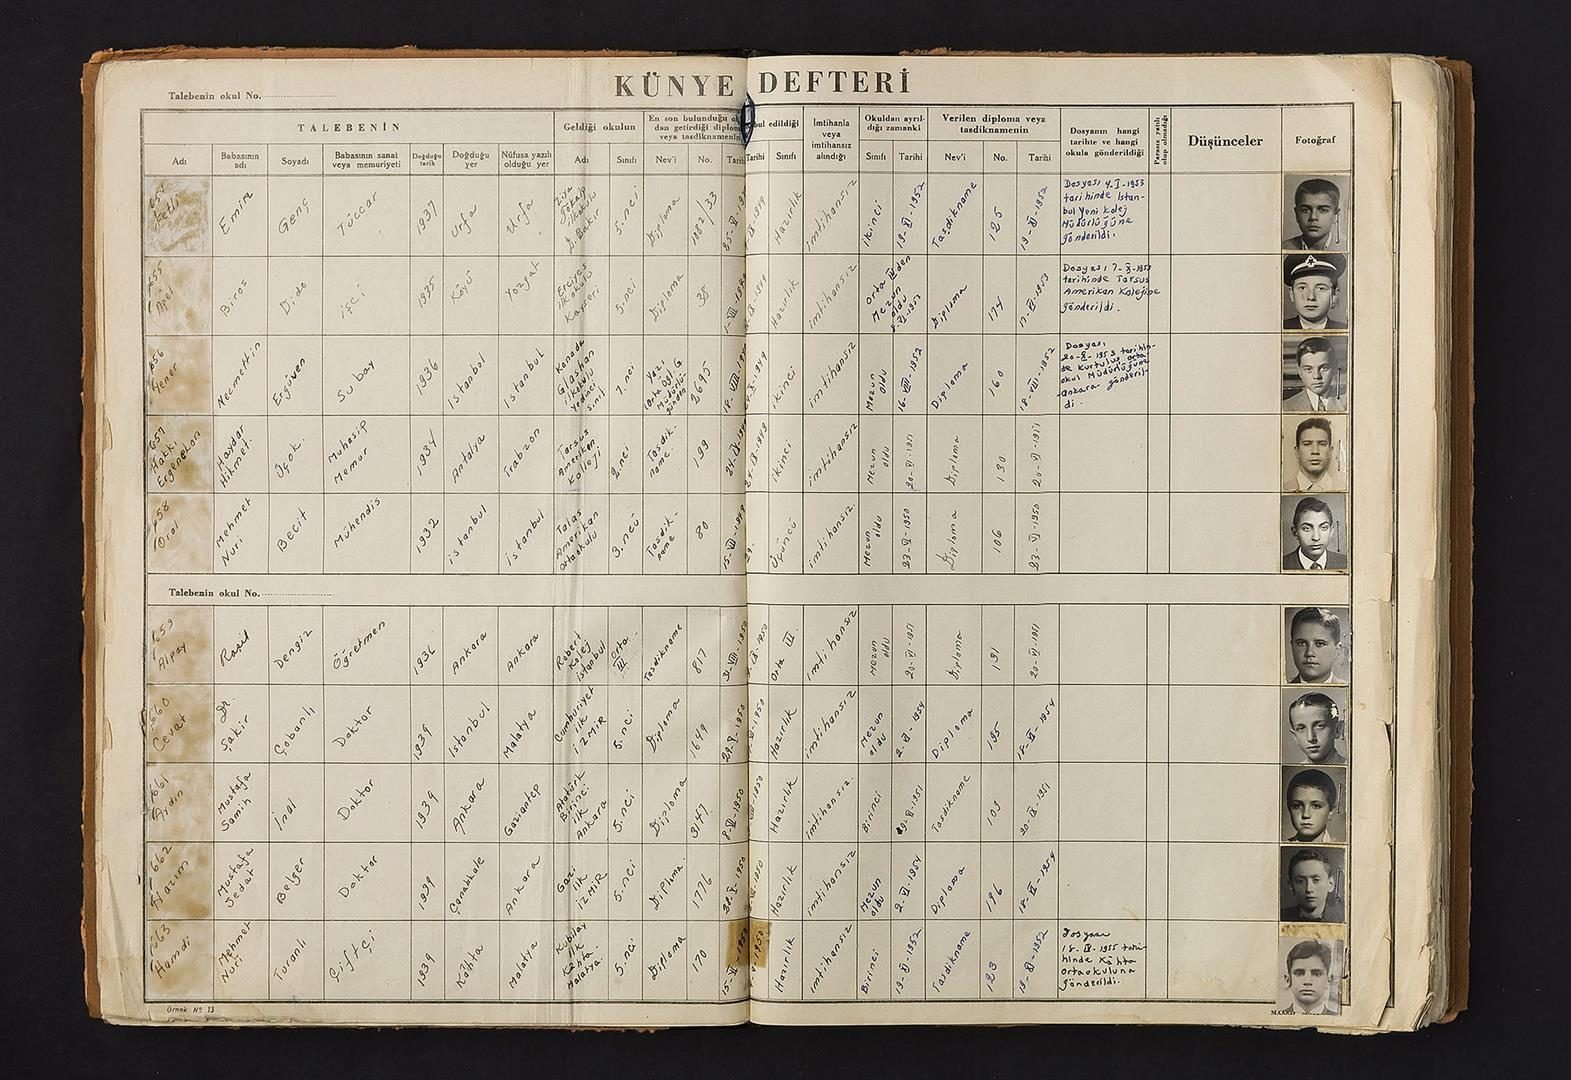 KÜNYE DEFTERİ
Talebenin okul No.
TALEBENİN
Geldiği okulun
En son bulunduğu
dan getirdiği
veya tasdiknamenin
bul edildiği
İmtihanla veya imtihansız alındığı
Okuldan ayrıl-dığı zamanki
Verilen diploma veya tasdiknamenin
Dosyanın hangi tarihte ve hangi okula gönderildiği
Parasız yatılı olup olmadığı
Düşünceler
Fotoğraf
Adı
Babasının adı
Soyadı
Babasının sanat veya memuriyeti
Doğduğu tarih
Doğduğu yer
Nüfusa yazılı olduğu yer
Adı
Sınıfı
Nev'i
No.
Tarihi
Sınıfı
Sınıfı
Tarihi
Nev'i
No.
Tarihi
Emin Genç Tüccar 1937 Urfa Urfa Ziya Gökalp ilkokulu D. Bakır 5.nci Diploma Hazırlık imtihansız ikinci 19-VI-1952 Tasdikname 125 19-VI-1952
Dosyası 4-I-1953
tarihinde İstan-
bul Yeni Kolej
Müdürlüğüne
gönderildi.
655 Dido işçi 1935 Köyü Yozgat Erciyes ilkokulu Kayseri 5.nci Diploma 38 Hazırlık imtihansız Orta IV den Mezun oldu Diploma 174
tarihinde Tarsus
Amerikan Kolejine
gönderildi.
656 Yener Necmettin Ergüven Subay 1936 İstanbul İstanbul Diploma 2695 ikinci imtihansız Mezun oldu 16-VIII-1952 Diploma 160 18-VIII-1952
Dosyası
20-X-1953 tarihin-
de Kurtuluş Orta
okul Müdürlüğüne
Ankara gönderil-
di.
657 Hakkı Ergenekon Haydar Hikmet Üçok Muhasip Memur 1934 Antalya Trabzon Tarsus Amerikan Kolleji 2.nci Tasdik-name 199 ikinci imtihansız Mezun oldu 20-VI-1951 Diploma 130 20-VI-1951
658 Oral Mehmet Nuri Becit Mühendis 1932 istanbul istanbul Talas Amerikan ortaokulu 3.ncü Tasdik-name 80 Üçüncü imtihansız Mezun oldu 23-VI-1950 Diploma 106 23-VI-1950
Talebenin okul No.
659 Alpay Raşit Dengiz Öğretmen 1936 Ankara Ankara Robert Kolej istanbul Orta III Tasdikname 817 31-VIII-1950 Orta III. imtihansız Mezun oldu 20-VI-1951 Diploma 131 20-VI-1951
660 Cevat Dr. Şakir Çobanlı Doktor 1939 İstanbul Malatya Cumhuriyet ilk İZMİR 5.nci Diploma 1649 Hazırlık imtihansız Mezun oldu 2-VI-1954 Diploma 195 18-VI-1954
661 Aydın Mustafa Samih İnal Doktor 1939 Ankara Gaziantep Atatürk Birinci ilk Ankara 5.nci Diploma 3147 Hazırlık imtihansız. Birinci Tasdikname 103
662 Nazım Mustafa Sedat Belger Doktor 1939 Çanakkale Ankara Gazi ilk İZMİR 5.nci Diploma. 1776 Hazırlık imtihansız Mezun oldu 2-VI-1954 Diploma 196 18-VI-1954
663 Hamdi Mehmet Nuri Turanlı Çiftçi 1939 Kâhta Malatya Kubilay ilk Kâhta-Malatya. 5.nci Diploma 170 Hazırlık imtihansız Birinci 19-VI-1952 Tasdikname 123 19-VI-1952
Dosyası
18-IV-1955 tari-
hinde Kâhta
Ortaokuluna
gönderildi.
Örnek No 13